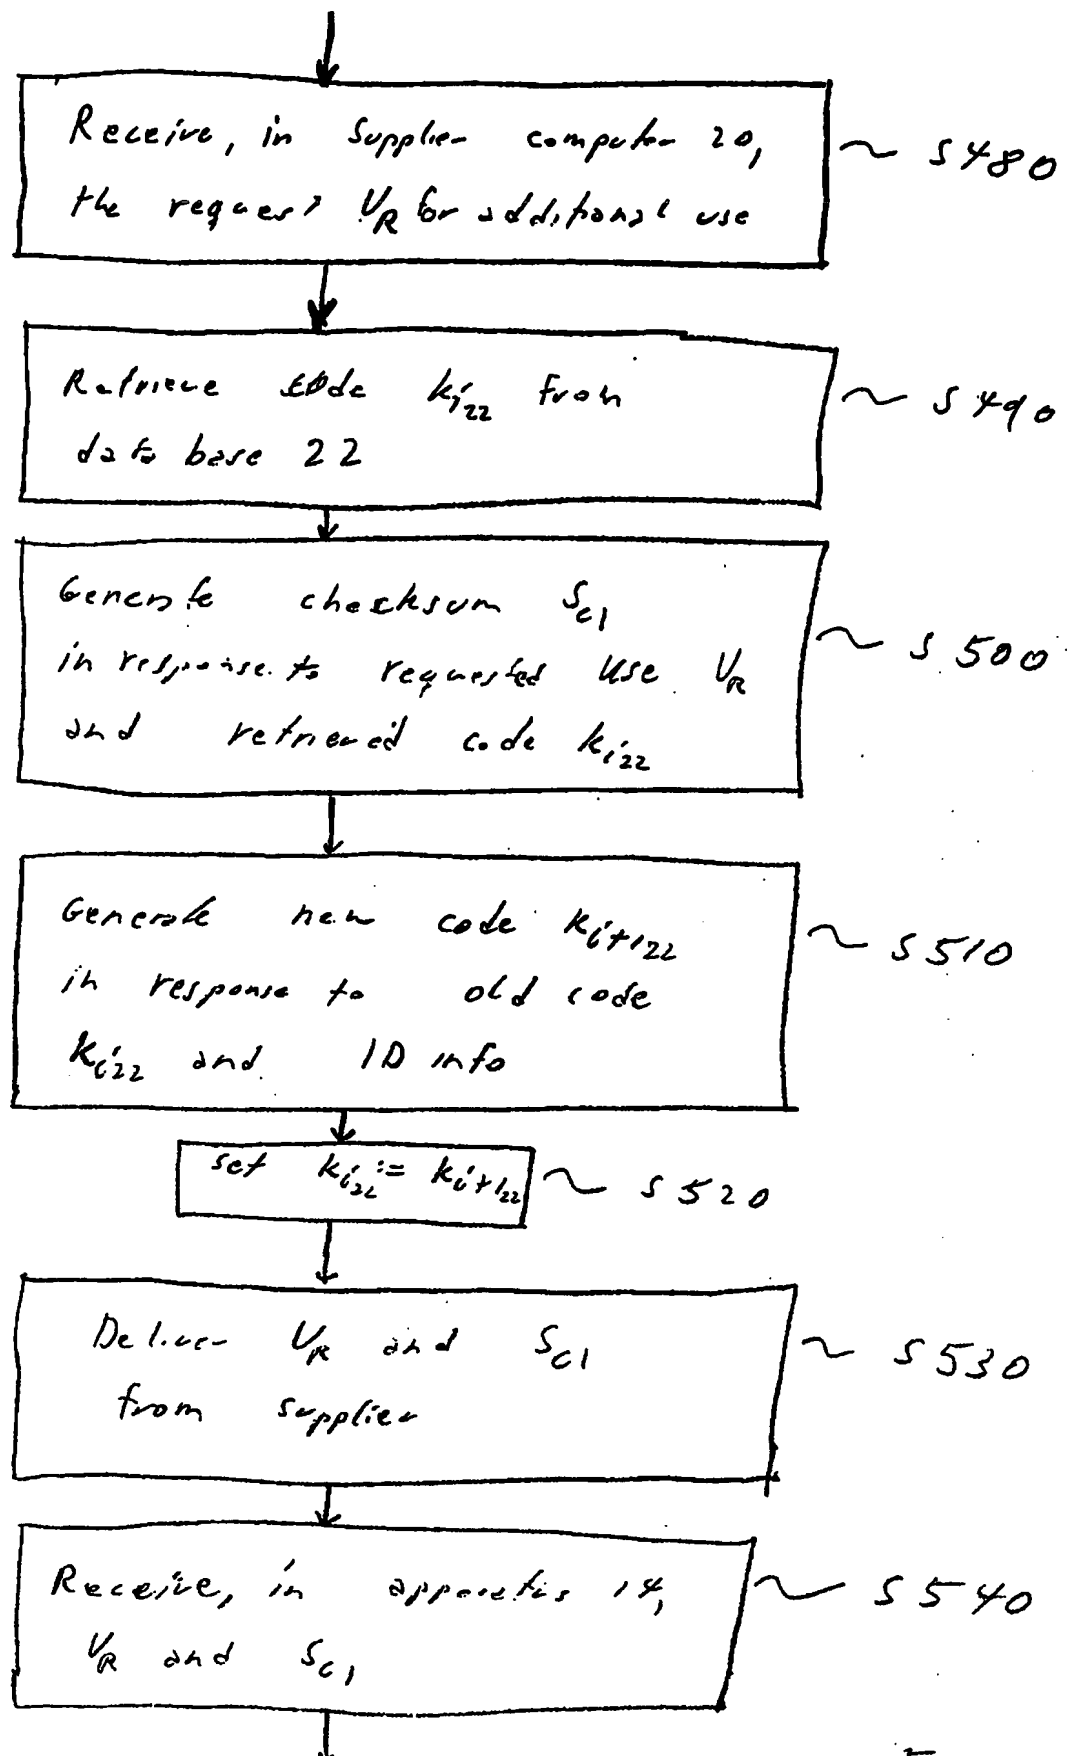 Receive, in supplier computer 20, S480
the request UR for additional use
Retrieve code ki22 from S490
data base 22
Generate checksum Sc1
in response to requested use UR S500
and retrieved code ki22
Generate new code ki+122 S510
in response to old code
ki22 and ID info
set ki22 := ki+122 S520
Deliver UR and SC1 S530
from supplier
Receive, in apparatus 14, S540
UR and SC1